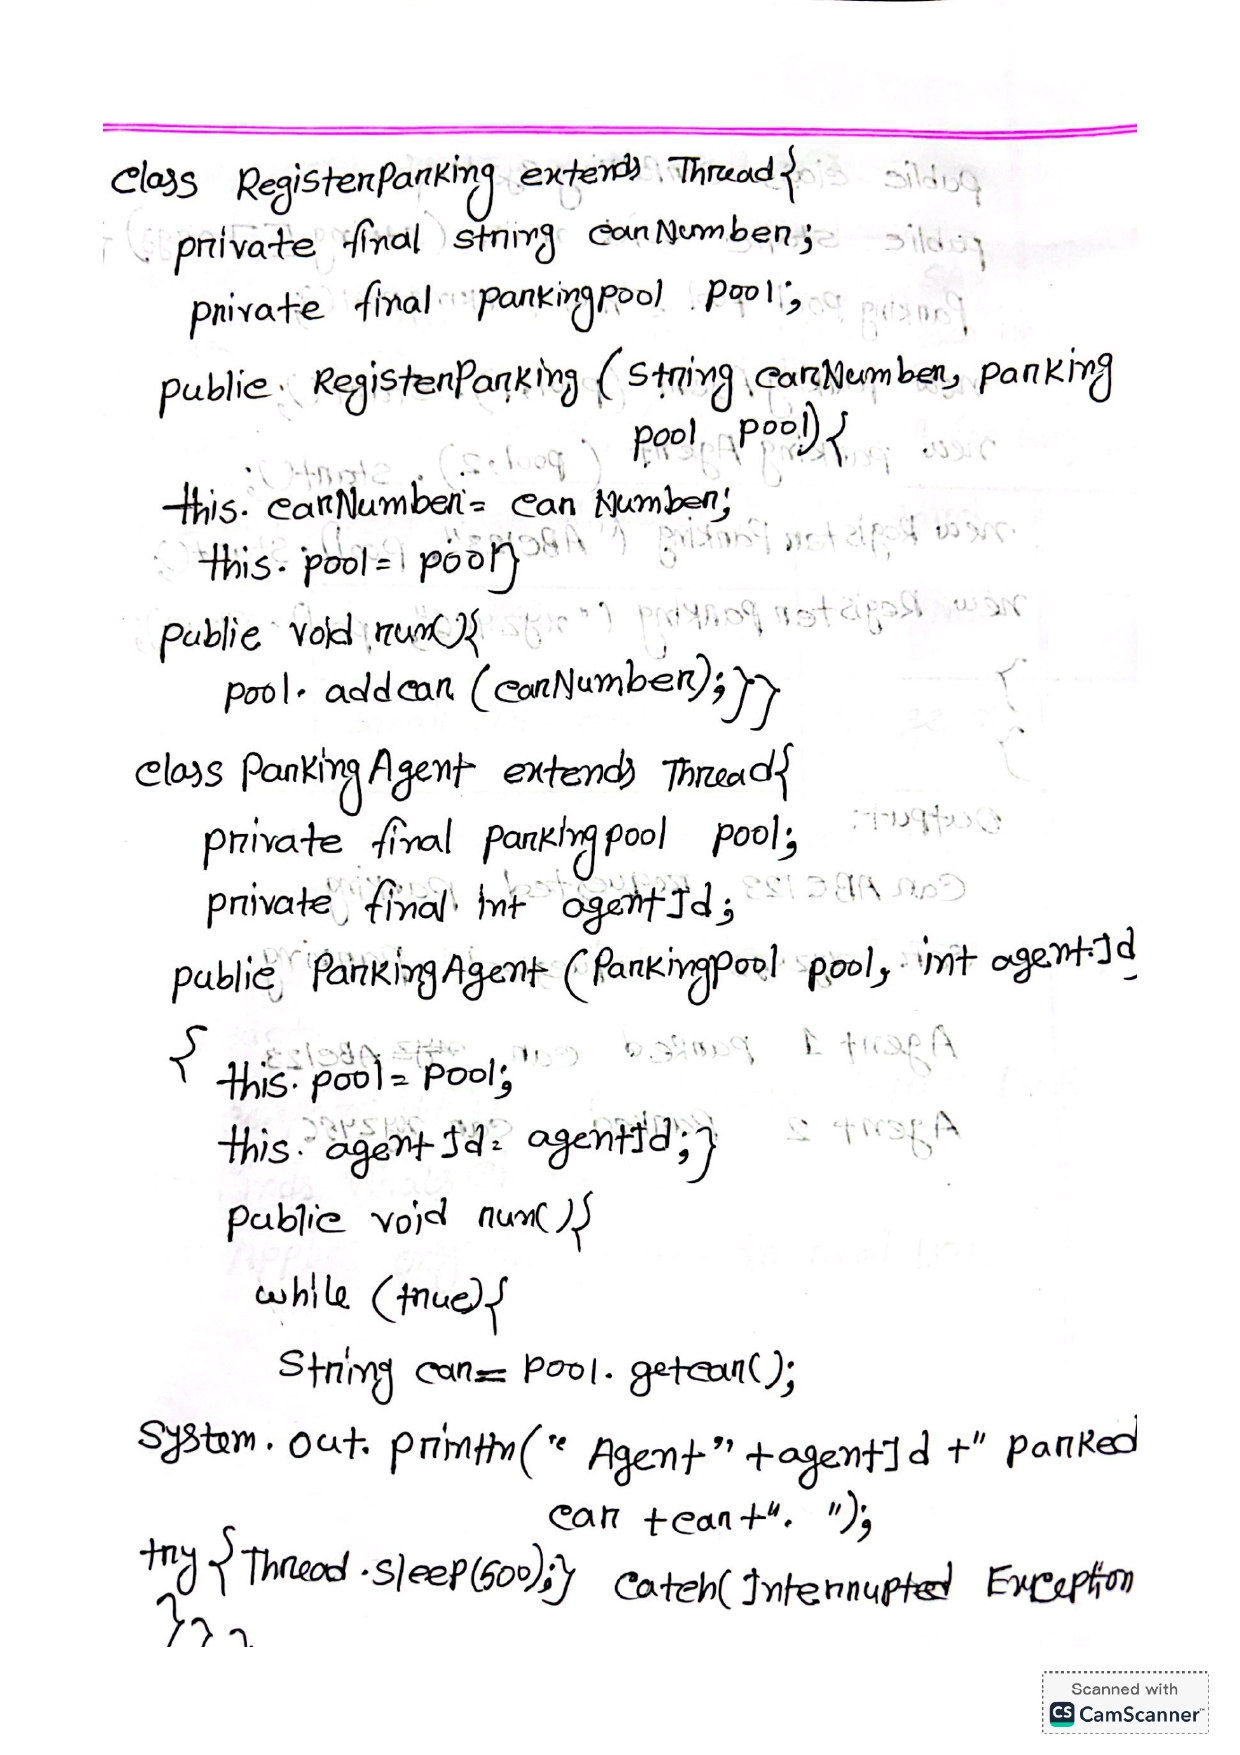 class RegisterParking extends Thread{
private final string carNumber;
private final parkingpool pool;
public RegisterParking (string carNumber, parking
pool pool){
this. carNumber = car Number;
this. pool = pool}
public void run(){
pool. addcar (carNumber);}}
class ParkingAgent extends Thread{
private final parkingpool pool;
private final int agentId;
public ParkingAgent (ParkingPool pool, int agentId
{
this. pool = pool;
this. agentId = agentId;}
public void run(){
while (true){
String car = pool. getcar();
System. out. println(" Agent" +agentId +" parked
car +car+". ");
try {Thread.sleep(500);} catch(Interrupted Exception
}}}
Scanned with
CS CamScanner